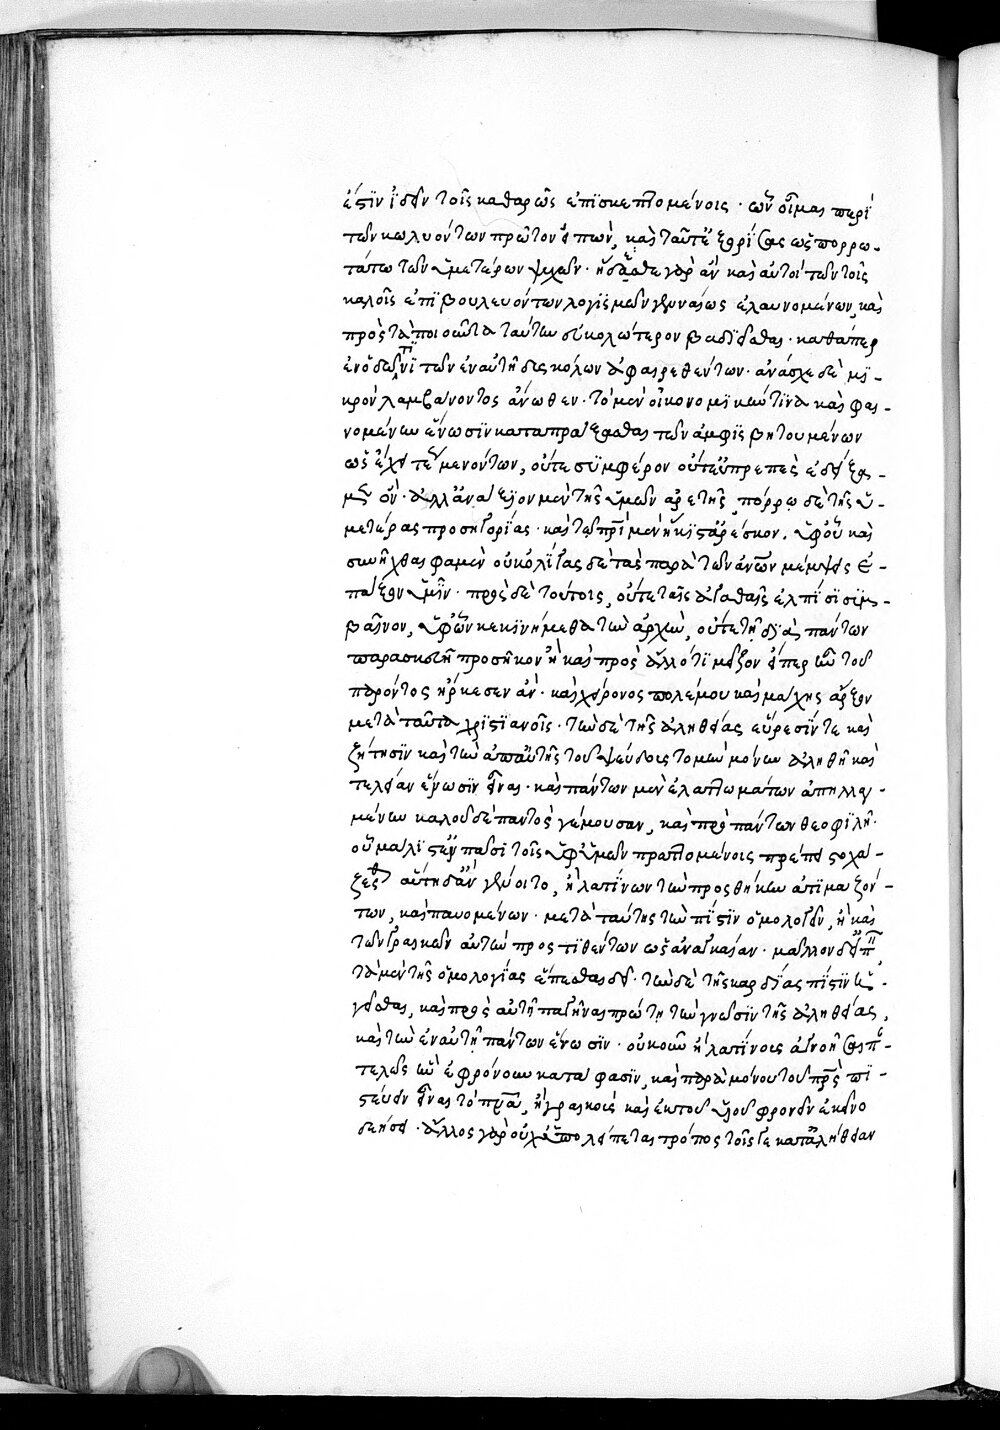 ἐστὶν ἰδεῖν τοῖς καθαρῶς ἐπισκεπτομένοις · ὧν οἶμαι περὶ
τῶν κωλυόντων πρῶτον εἰπὼν, καὶ ταῦτ' ἐξορίσαι ὡς πορρω-
τάτω τῶν ὑμετέρων ψυχῶν · γὰρ ἂν καὶ αὐτοὶ τῶν τοῖς
καλοῖς ἐπιβουλευόντων λογισμῶν γενναίως ἐλαυνομένων, καὶ
πρὸς τὰ ποιοῦντα ταύτην εὐκολώτερον βαδίζεσθαι · καθάπερ
ἐν ὁδῷ τινὶ τῶν ἐν αὐτῇ δυσκόλων ἀφαιρεθέντων · ἀνάσχεσθε μι-
κρὸν λαμβάνοντος ἄνωθεν · τὸ μὲν οἰκονομικὴν τινὰ καὶ φαι-
νομένην ἕνωσιν καταπράξασθαι τῶν ἀμφισβητουμένων
ὡς ἔχει τε μενόντων, οὔτε συμφέρον οὔτ' εὐπρεπὲς ἐδείξα-
μεν ὄν · ἀλλ' ἀνάξιον μὲν τῆς ὑμῶν ἀρετῆς, πόρρω δὲ τῆς ὑ-
μετέρας προσηγορίας · καὶ τῷ πατρὶ μὲν ἥκιστ' ἀρέσκον. ὑφ' οὗ καὶ
συνῆχθαι φαμὲν οὐκ ὀλίγας δὲ τὰς παρὰ τῶν ἀνθρώπων μέμψεις ἐ-
πάξον ὑμῖν · πρὸς δὲ τούτοις, οὔτε ταῖς ἀγαθαῖς ἐλπίσι συμ-
βαῖνον, ὑφ' ὧν κεκινήμεθα τὴν ἀρχὴν, οὔτε τῇ διὰ πάντων
παρασκευῇ προσῆκον ἢ καὶ πρὸς ἄλλό τι μεῖζον εἴπερ ἦν τοῦ
παρόντος ἤρκεσεν ἄν · καὶ χείρονος πολέμου καὶ μάχης ἄρξον
μετὰ ταῦτα χριστιανοῖς · τὴν δὲ τῆς ἀληθείας εὕρεσίν τε καὶ
ζήτησιν καὶ τὴν ἀπ' αὐτῆς τοῦ ψεύδους τομὴν μόνην ἀληθῆ καὶ
τελείαν ἕνωσιν εἶναι · καὶ πάντων μὲν ἐλαττωμάτων ἀπηλλαγ-
μένην καλοῦ δὲ παντὸς γέμουσαν, καὶ πρὸ πάντων θεοφιλῆ ·
οὗ μάλιστ' ἐν πᾶσι τοῖς ὑφ' ὑμῶν πραττομένοις πρέπει στοχά-
ζεσθαι αὕτη δ' ἂν γένοιτο, ἢ λατίνων τὴν προσθήκην ἀτιμαζόν-
των, καὶ παυομένων · μετὰ ταύτης τὴν πίστιν ὁμολογεῖν, ἢ καὶ
τῶν γραικῶν αὐτὴν προστιθέντων ὡς ἀναγκαίαν · μᾶλλον δ' ἐπεὶ
τὰ μὲν τῆς ὁμολογίας ἕπεσθαι δεῖ · τὴν δὲ τῆς καρδίας πίστιν ἡ-
γεῖσθαι, καὶ πρὸς αὐτῇ παγῆναι πρώτῃ τὴν γνῶσιν τῆς ἀληθείας,
καὶ τὴν ἐν αὐτῇ πάντων ἕνωσιν · οὐκοῦν ἢ λατίνοις ἀγνοῆσαι παν-
τελῶς ἣν ἐφρόνουν κατάφασιν, καὶ παρὰ μόνου τοῦ πατρὸς πι-
στεύειν εἶναι τὸ πνεῦμα, ἢ γραικοὺς καὶ ἐκ τοῦ υἱοῦ φρονεῖν ἐκεῖνο
δεήσει · ἄλλος γὰρ οὐχ ὑπολείπεται τρόπος τοῖς γε κατ' ἀλήθειαν